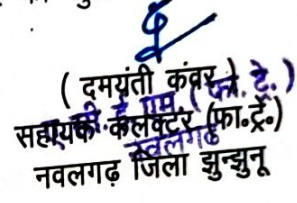 ( दमयंती कंवर )
सहायक कलक्टर (फा॰ट्रे॰)
नवलगढ़ जिला झुन्झुनू